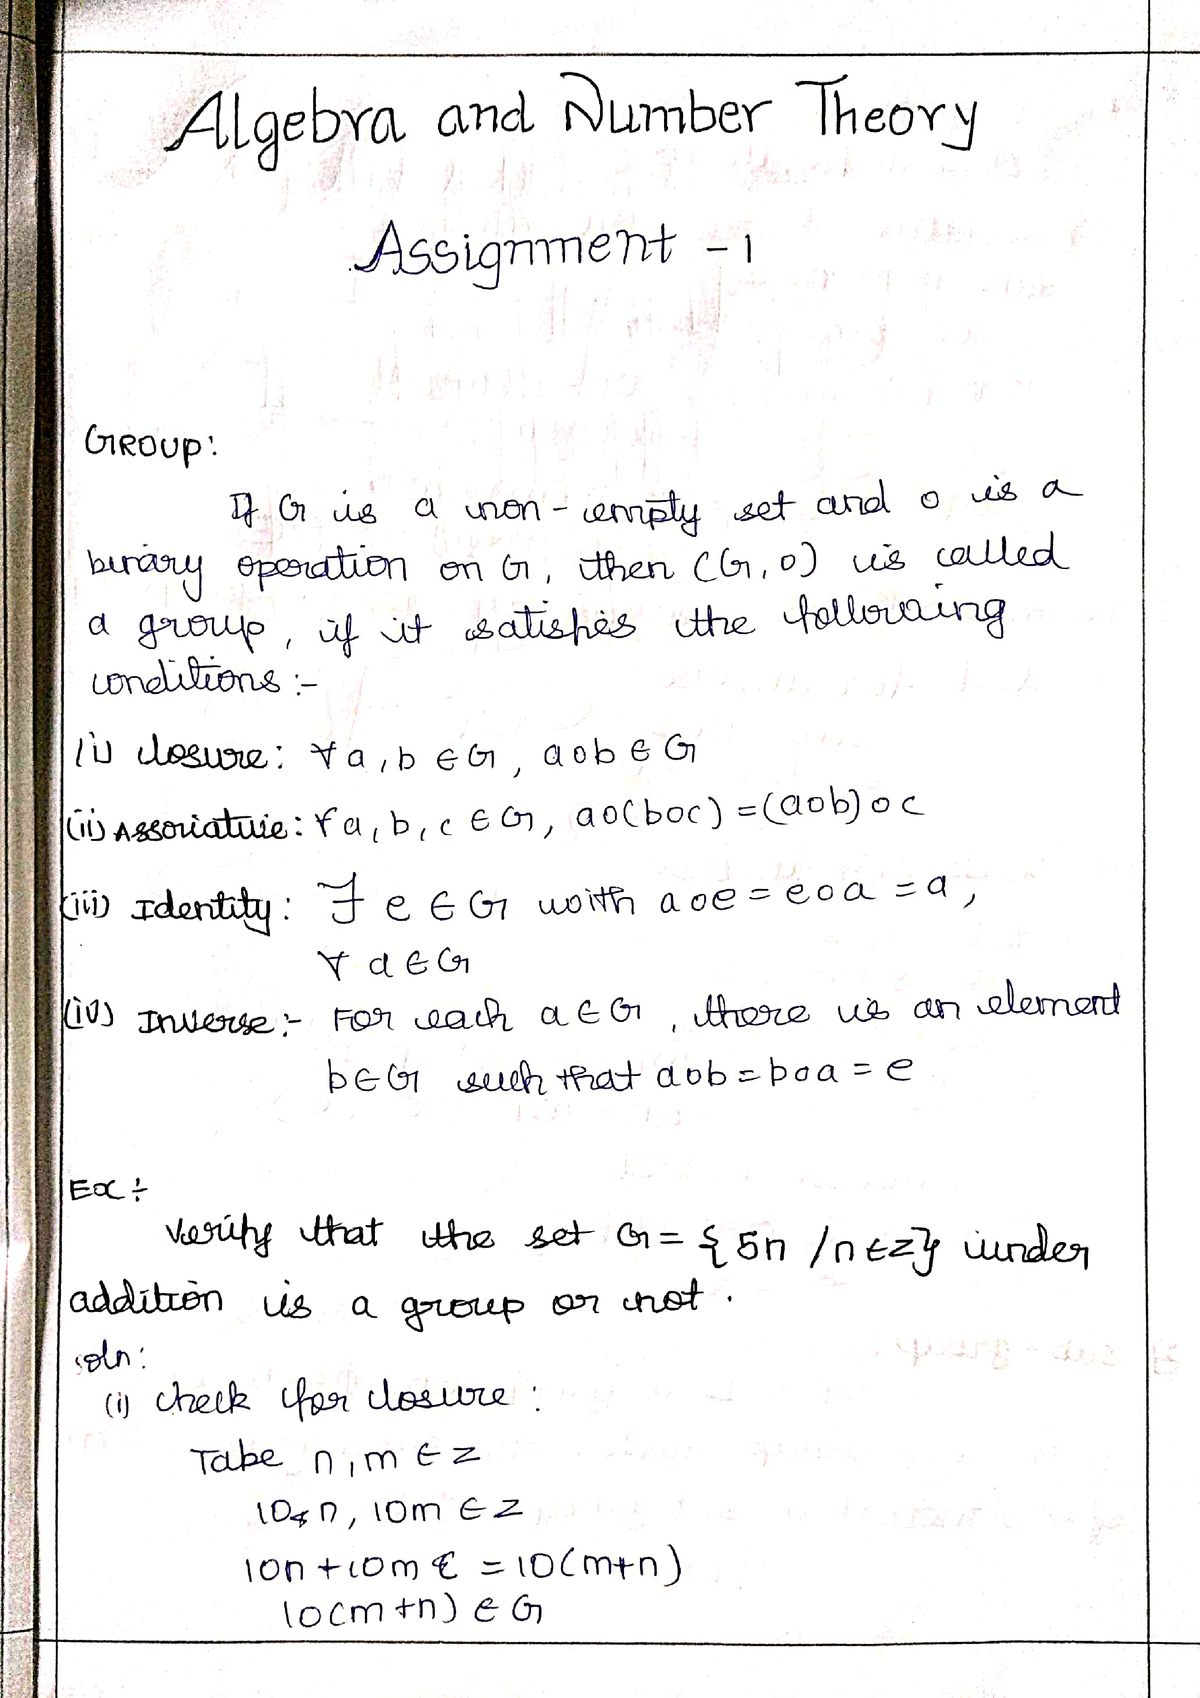 Algebra and Number Theory
Assignment - 1
GROUP:
If G is a non-empty set and o is a
binary operation on G, then (G, o) is called
a group, if it satisfies the following
conditions :-
(i) closure: ∀ a, b ∈ G, a o b ∈ G
(ii) Associative: ∀ a, b, c ∈ G, a o (b o c) = (a o b) o c
(iii) Identity: ∃ e ∈ G with a o e = e o a = a,
∀ a ∈ G
(iv) Inverse:- For each a ∈ G, there is an element
b ∈ G such that a o b = b o a = e
Ex :-
Verify that the set G = {5n / n ∈ z} under
addition is a group or not.
soln:
(i) check for closure:
Take n, m ∈ z
10n, 10m ∈ z
10n + 10m = 10(m+n)
10(m+n) ∈ G